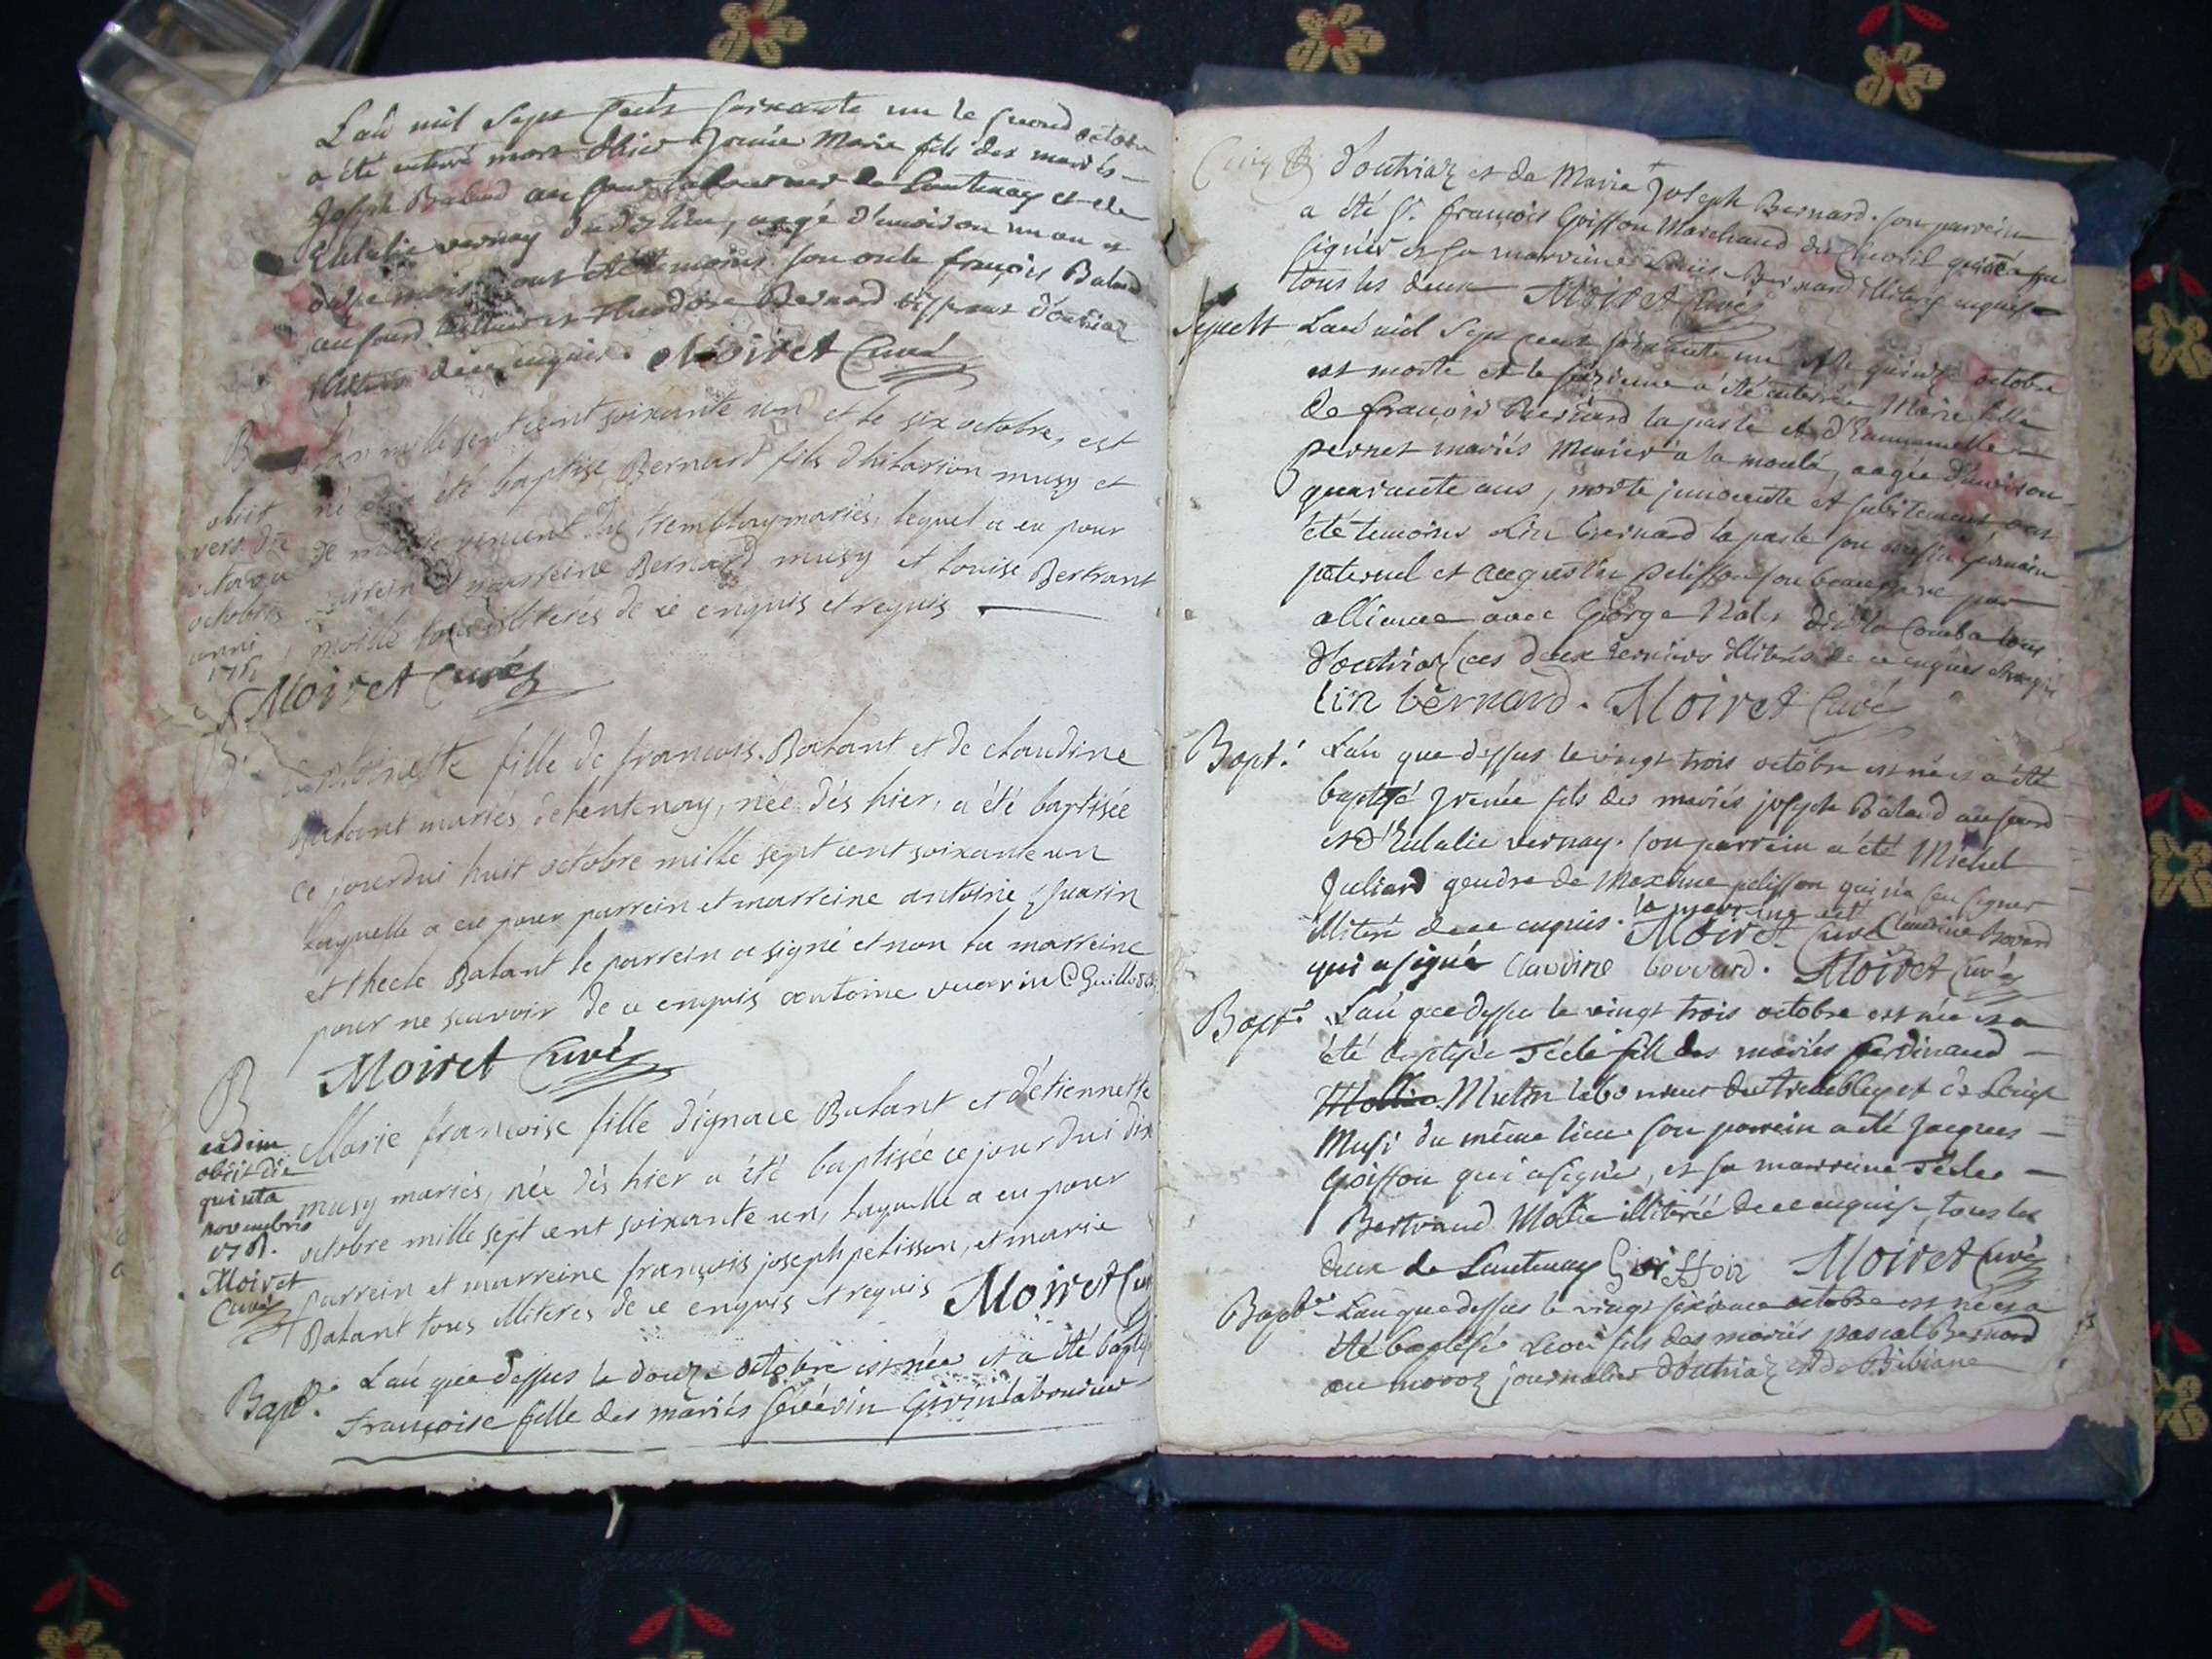 L'an mil sept cents soixante un le second octobre
a été enterré mort d'hier Irenée Marie fils des mariés
Joseph Baland au four laboureur de Lantenay et de
Eulalie vernay du dt lieu, aagé d'environ un an et
mois, ont été temoins son oncle françois Baland
au fourd et Theodore Bernard d'outriaz
de ce enquis. Moiret Curé
B
L'an mille sept cent soixante un et le six octobre, est
né et a été baptisé Bernard fils d'hilarion musy et
de marie vincent du tremblay mariés, lequel a eu pour
parrein et marreine Bernard musy et Louise Bertrant
moille tous illiterés de ce enquis et requis
obiit
vero die
octava
octobris
anni
1761
Moiret Curé
B
Antoinette fille de francois Balant et de claudine
Balant mariés, de lentenay, née dés hier, a été baptisée
ce jourdui huit octobre mille sept cent soixante un
laquelle a eu pour parrein et marreine antoine Guarin
et thecle Balant le parrein a signé et non la marreine
pour ne scavoir de ce enquis antoine vuarin
Moiret Curé
B
Marie francoise fille d'ignace Balant et d'étiennette
musy mariés, née dés hier a été baptisée ce jourdui dix
octobre mille sept cent soixante un, laquelle a eu pour
parrein et marreine françois joseph pelisson, et marie
Balant tous illiteres de ce enquis et requis Moiret Curé
eadem
obiit die
quinta
novembris
1761.
Moiret
Curé
Bapt. L'an que dessus le douze octobre est née et a été baptisé
Françoise fille des mariés sévérin Girin laboureur
d'outriaz et de Marie Joseph Bernard. son parrein
a été Sr. françois Goiffon Marchand du Chevril qui n'a su
signer et sa marreine Bernard illiterés enquis
tous les deux Moiret Curé
Sepult L'an mil sept cent soixante un le quinze octobre
est morte et le seizieme a été enterrée Marie fille
de françois Bernard la paste et d'Emmanuelle
pernet mariés, aagée d'environ
quarante ans, morte innocente et subitement ont
été temoins Lin Bernard la paste son cousin germain
paternel et augustin pelisson son beaufrere par
alliance avec George dit la Comba tous
d'outriaz ces deux derniers illiterés de ce enquis
lin bernard. Moiret Curé
Bapt. L'an que dessus le vingt trois octobre est né et a été
baptisé Irenée fils des mariés joseph Baland au fourd
et d'Eulalie vernay. son parrein a été Michel
Juliard gendre de Maxime pelisson qui n'a su signer
illiteré de ce enquis. la marreine est Claudine Bovard
Moiret Curé
qui a signé Claudine bovvard. Moiret Curé
Bapt. L'an que dessus le vingt trois octobre est née et a
été baptisée Técle fille des mariés ferdinand
Mutin laboureur du tremblay et de Louise
Musi du même lieu son parrein a été Jacques
Goiffon qui a signé, et sa marreine Técle
Bertrand illiterée de ce enquise, tous les
deux de Lantenay Goiffon Moiret Curé
Bapt. L'an que dessus le vingt sixieme octobre est né et a
été baptisé Leon fils des mariés pascal Bernard
journalier d'outriaz et de Bibiane